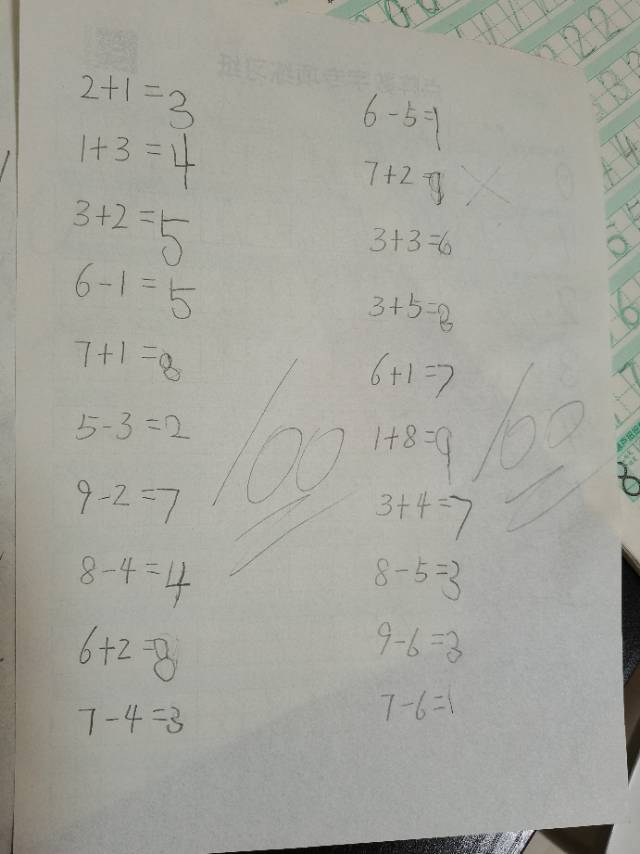 2+1=3
1+3=4
3+2=5
6-1=5
7+1=8
5-3=2
9-2=7
8-4=4
6+2=8
7-4=3
100
6-5=1
7+2=9
3+3=6
3+5=8
6+1=7
1+8=9
3+4=7
8-5=3
9-6=3
7-6=1
100